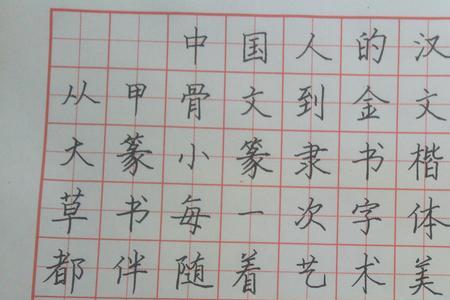 中国人的汉
从甲骨文到金文
大篆小篆隶书楷
草书每一次字体
都伴随着艺术美